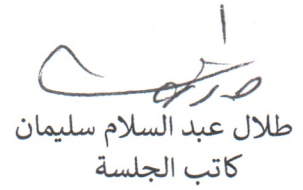 طلال عبد السلام سليمان
كاتب الجلسة